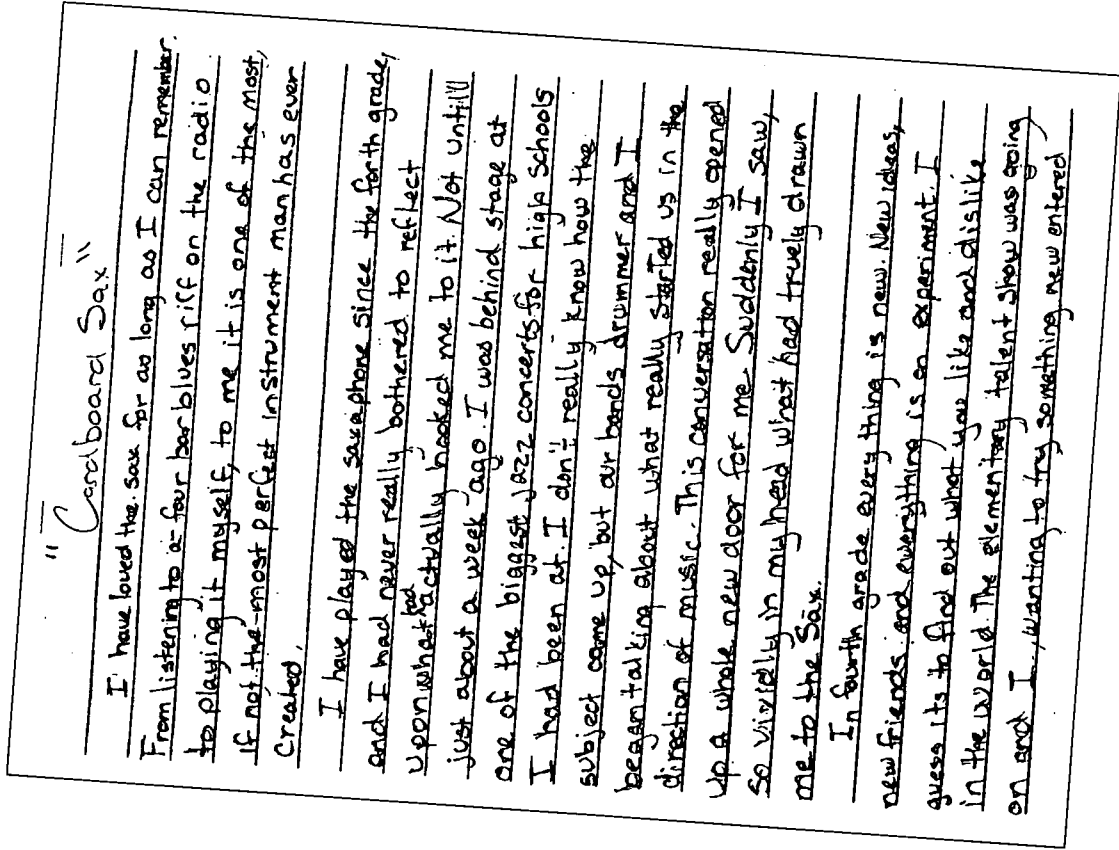 "Cardboard Sax"
I have loved the sax for as long as I can remember.
From listening to a four bar blues riff on the radio
to playing it myself, to me it is one of the most,
if not the most perfect instrument man has ever
created.
I have played the saxaphone since the forth grade,
and I had never really bothered to reflect
upon what had actually hooked me to it. Not untill
just about a week ago. I was behind stage at
one of the biggest jazz concerts for high schools
I had been at. I don't really know how the
subject came up, but our bands drummer and I
began talking about what really started us in the
direction of music. This conversation really opened
up a whole new door for me. Suddenly I saw,
so vividly in my head what had truely drawn
me to the Sax.
In fourth grade everything is new. New ideas,
new friends and everything is an experiment. I
guess its to find out what you like and dislike
in the world. The elementary talent show was going
on and I, wanting to try something new entered